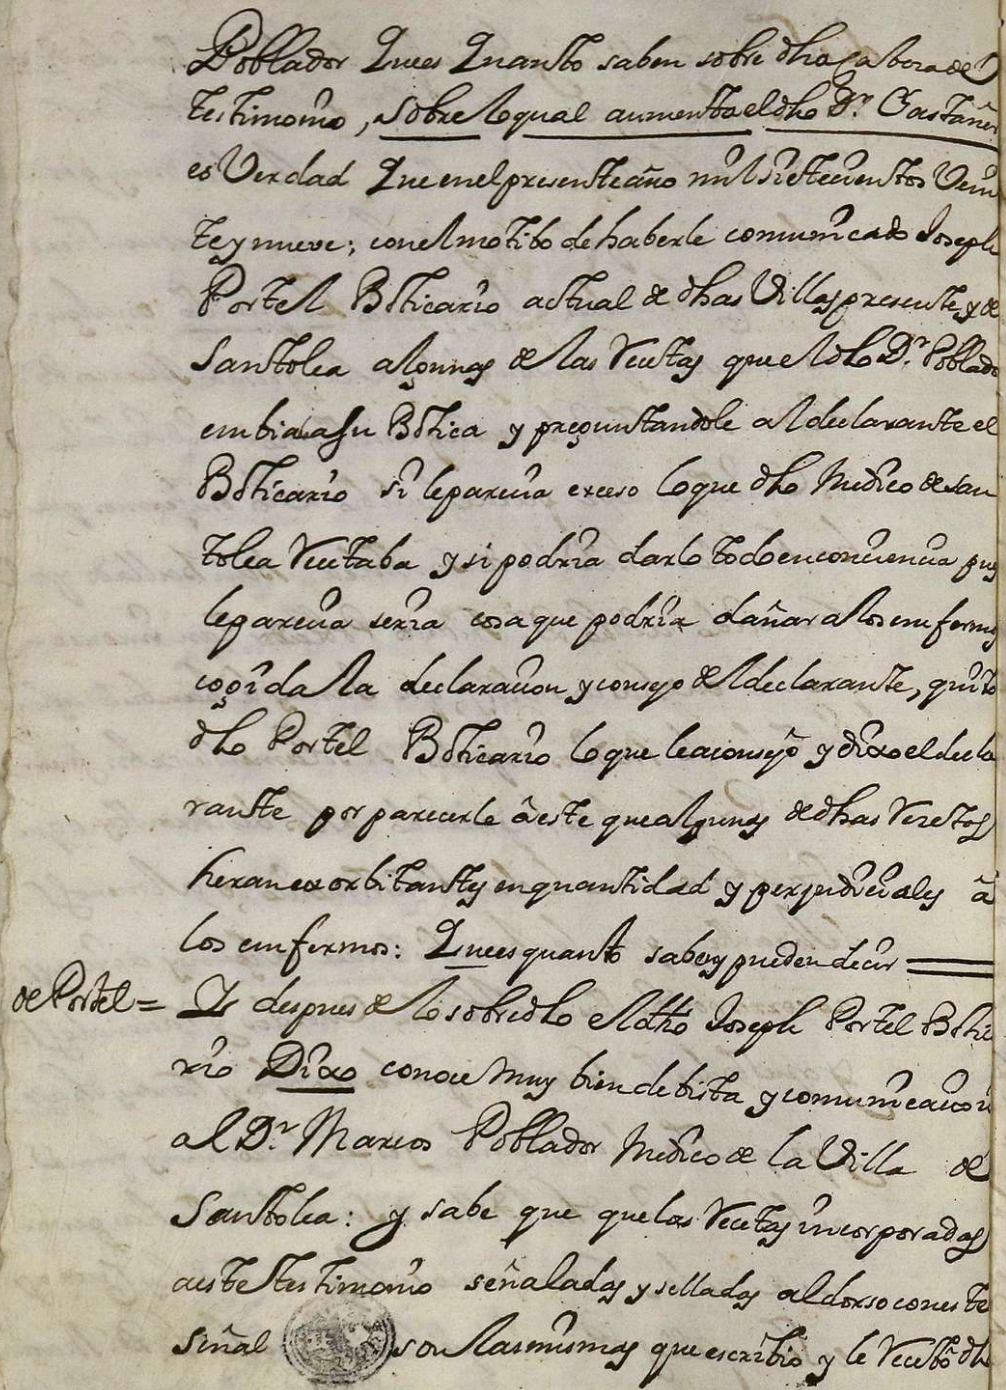 Poblador Quees Quanto saben sobre dha Cabeza de
testimonio, sobre lo qual aumenta el dho Dr. Castañer
es Verdad Que en el presente año mil sietecientos Vein
te y nueve; con el motibo de haberle comunicado Joseph
Portel Boticario actual de dhas Villas presente, y de
Santolea algunas de las Recetas que el dho Dr. Poblado
embia a su Botica y preguntandole al declarante el
Boticario si le parecia exceso lo que dho Medico de San
tolea Recetaba y si podria darlo todo en conciencia pues
le parecia seria cosa que podria dañar a los enfermos
cogida la declaracion y consejo del declarante, quito
dho Portel Boticario lo que le aconsejó y dixo el decla
rante por parecerle â este que algunas de dhas Rezetas
heran exorbitantes en quantidad y perjudiciales â
los enfermos: Quees quanto saben y pueden decir
de Portel = Y despues de lo sobredho el dho Joseph Portel Botica
rio Dixo conoce muy bien de bista y comunicacion
al Dr. Marcos Poblador Medico de la Villa de
Santolea: y sabe que que las Recetas incorporadas
a este testimonio señaladas y selladas al dorso con este
señal son las mismas que escribio y le Recetô dho